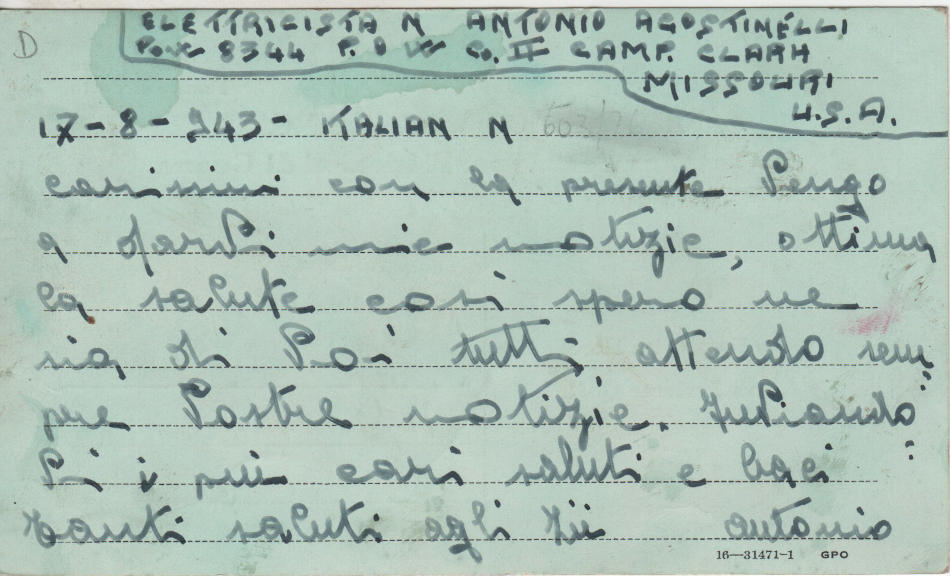 D
ELETTRICISTA N ANTONIO AGOSTINELLI
8344 P.O W Co. II CAMP. CLARH
MISSOURI
U.S.A.
17-8-943- ITALIAN N
carissimi con la presente Vengo
a darVi mie notizie, ottima
la salute così spero ne
sia di Voi tutti, attendo sem
pre Vostre notizie. InViando
Vi i più cari saluti e baci
Tanti saluti agli Zii antonio
16—31471-1 GPO